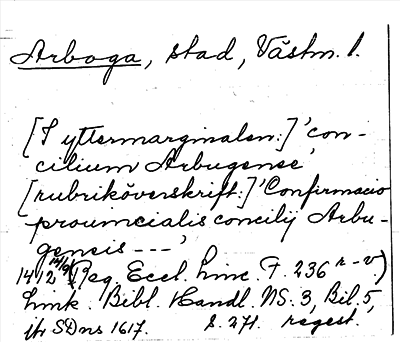 Arboga, stad, Västm. l.
[I yttermarginalen:] 'con-
cilium Arbugense'
[rubriköverskrift:] 'Confirmacio
prouincialis concilij Arbu-
gensis ---'
1412 14/9 (Reg. Eccl. Linc. F. 236 r-v.)
Link. Bibl. Handl. NS. 3, Bil. 5,
jfr SDns 1617. S. 271. regest.